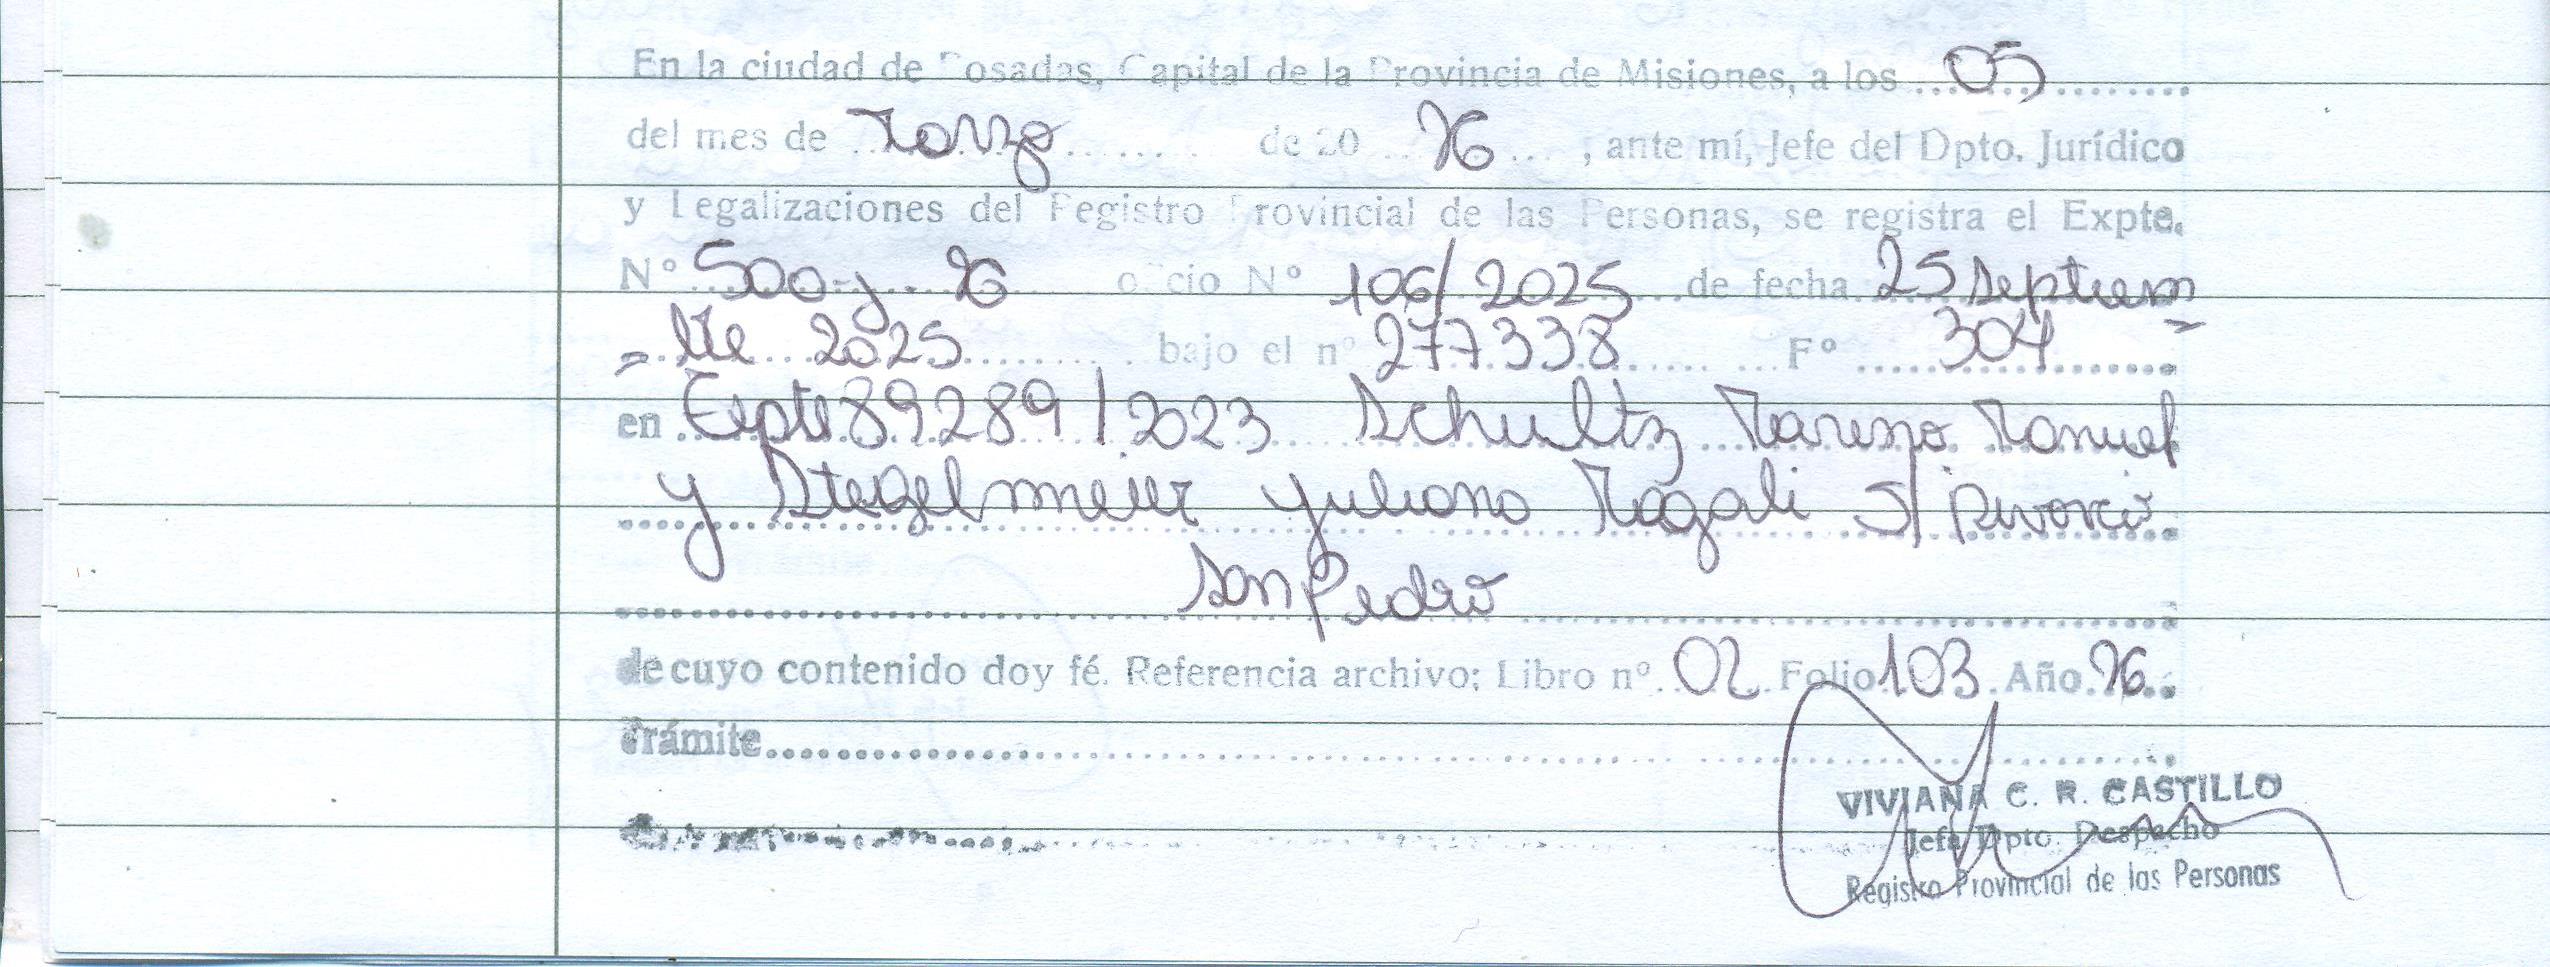 En la ciudad de Posadas, Capital de la Provincia de Misiones, a los 05
del mes de Marzo de 20 26, ante mí, Jefe del Dpto. Jurídico
y Legalizaciones del Registro Provincial de las Personas, se registra el Expte.
Nº 500-y-26 oficio Nº 106/2025 de fecha 25 septiem
= bre 2025 bajo el nº 277.338 Fº 304
en Expte 89289/2023 Schultz Mareno Manuel
y Stegelmeier Yuliana Magali S/ Divorcio
San Pedro
de cuyo contenido doy fé. Referencia archivo; Libro nº 02 Folio 103 Año 26.
Trámite
VIVIANA C. R. CASTILLO
Jefa Dpto. Despacho
Registro Provincial de las Personas